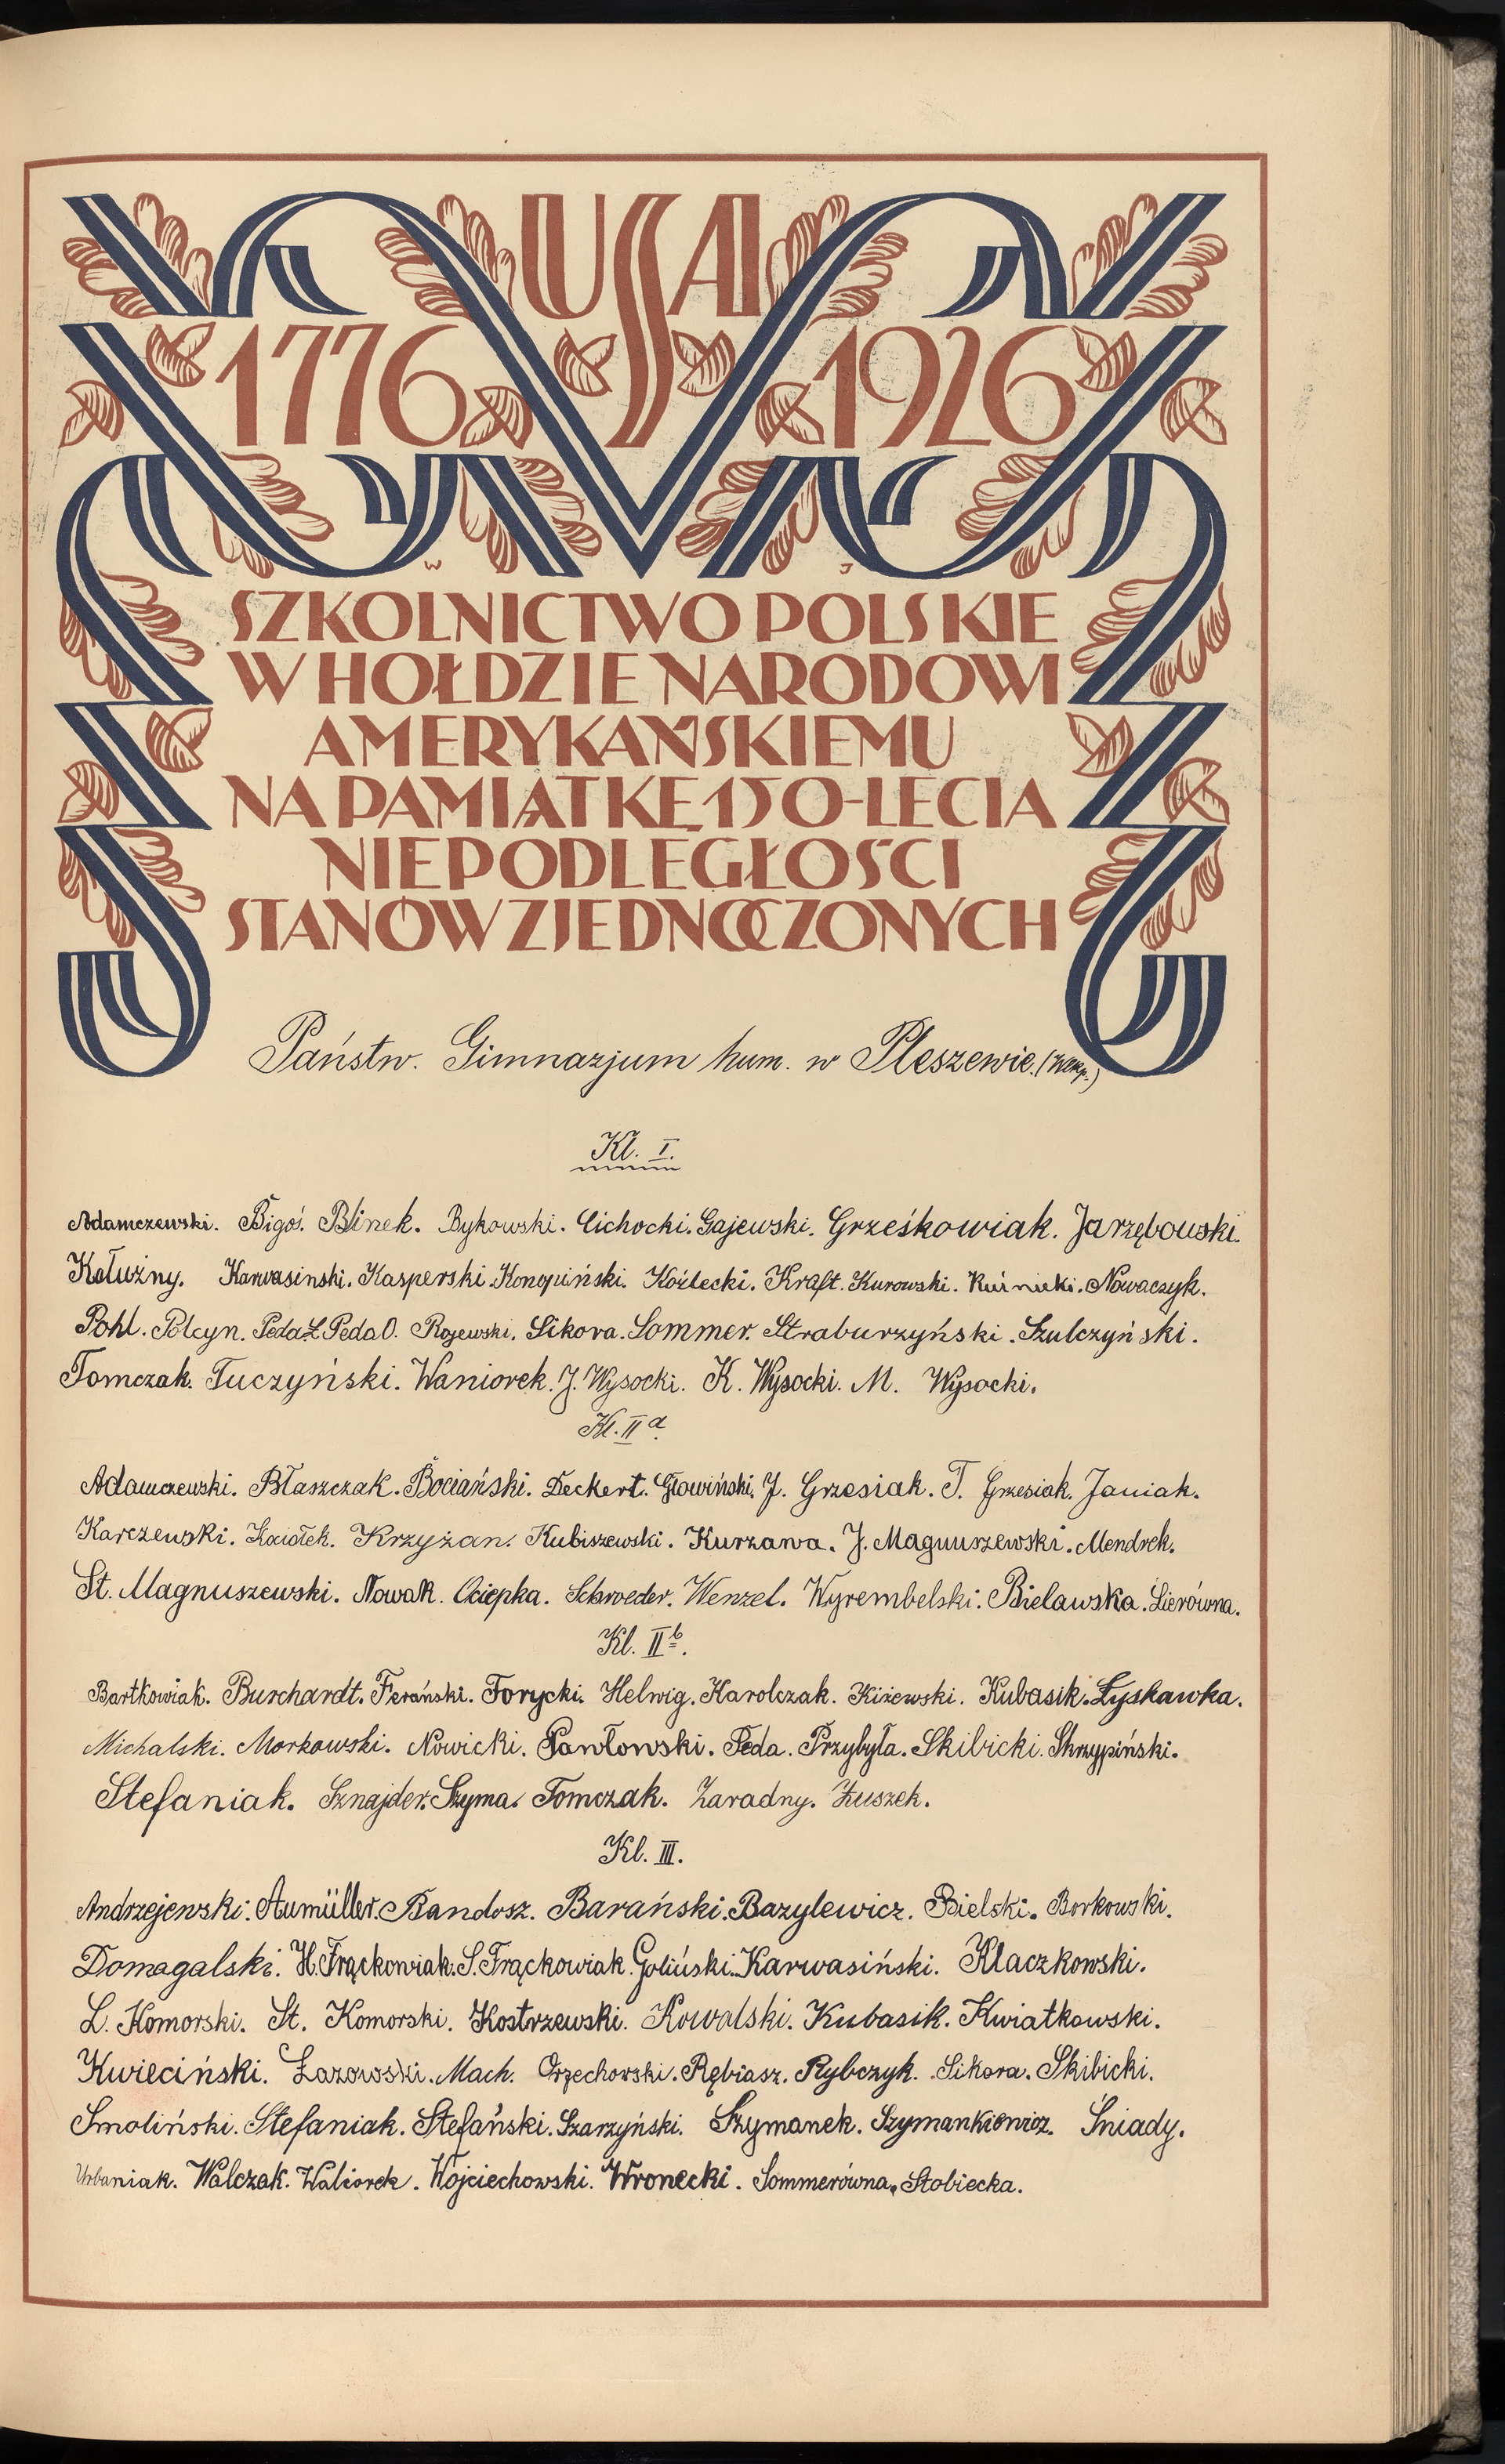 USA
1776 1926
W J
SZKOLNICTWO POLSKIE
W HOŁDZIE NARODOWI
AMERYKAŃSKIEMU
NA PAMIĄTKĘ 150-LECIA
NIEPODLEGŁOŚCI
STANÓW ZJEDNOCZONYCH
Państw. Gimnazjum hum. w Pleszewie. (Wlkp.)
Kl. I.
Adamczewski. Bigoś. Blinek. Bykowski. Cichocki. Gajewski. Grześkowiak. Jarzębowski.
Kałużny. Karwasinski. Kasperski. Konopiński. Koźlecki. Kraft. Kurowski. Kuśnicki. Nowaczyk.
Pohl. Polcyn. Peda Z. Peda O. Rojewski. Sikora. Sommer. Straburzyński. Szulczyński.
Tomczak. Tuczyński. Waniorek. J. Wysocki. K. Wysocki. M. Wysocki.
Kl. II a.
Adamczewski. Błaszczak. Bociański. Deckert. Głowiński. J. Grzesiak. T. Grzesiak. Janiak.
Karczewski. Krzyżan. Kubiszewski. Kurzawa. J. Magnuszewski. Mendrek.
St. Magnuszewski. Nowak. Ociepka. Schroeder. Wenzel. Wyrembelski. Bielawska. Lierówna.
Kl. II b.
Bartkowiak. Burchardt. Ferański. Forycki. Helwig. Karolczak. Kiżewski. Kubasik. Łyskawka.
Michalski. Morkowski. Nowicki. Pawłowski. Peda. Przybyła. Skibicki. Skrzypiński.
Stefaniak. Sznajder. Szyma. Tomczak. Zaradny. Żuszek.
Kl. III.
Andrzejewski. Aumüller. Bandosz. Barański. Bazylewicz. Bielski. Borkowski.
Domagalski. H. Frąckowiak. S. Frąckowiak. Goliński. Karwasiński. Klaczkowski.
L. Komorski. St. Komorski. Kostrzewski. Kowalski. Kubasik. Kwiatkowski.
Kwieciński. Łazowski. Mach. Orzechowski. Rębiasz. Rybczyk. Sikora. Skibicki.
Smoliński. Stefaniak. Stefański. Szarzyński. Szymanek. Szymankiewicz. Śniady.
Urbaniak. Walczak. Waliorek. Wojciechowski. Wronecki. Sommerówna. Stobiecka.